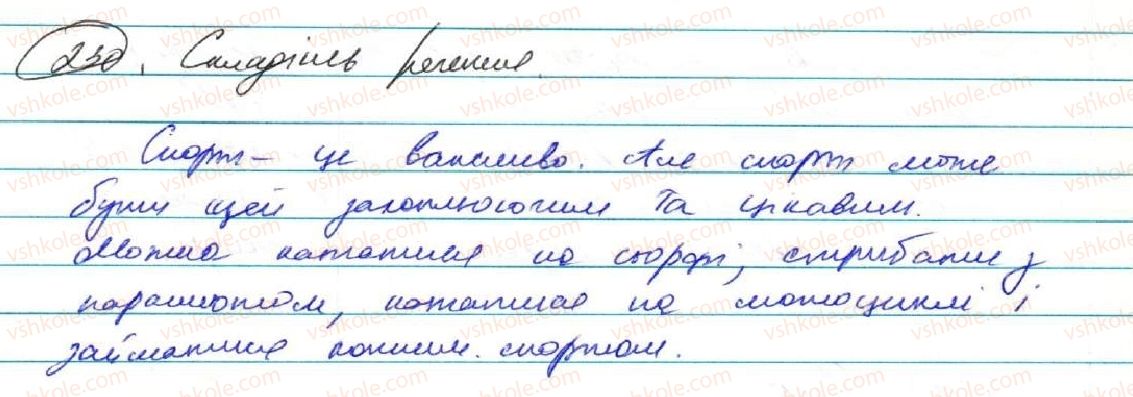 230. Складіть речення.
Спорт – це важливо. Але спорт може
бути щей захоплюючим та цікавим.
Можна кататися на сьорфі, стрибати з
парашютом, кататися на мотоциклі і
займатися кінним. спортом.